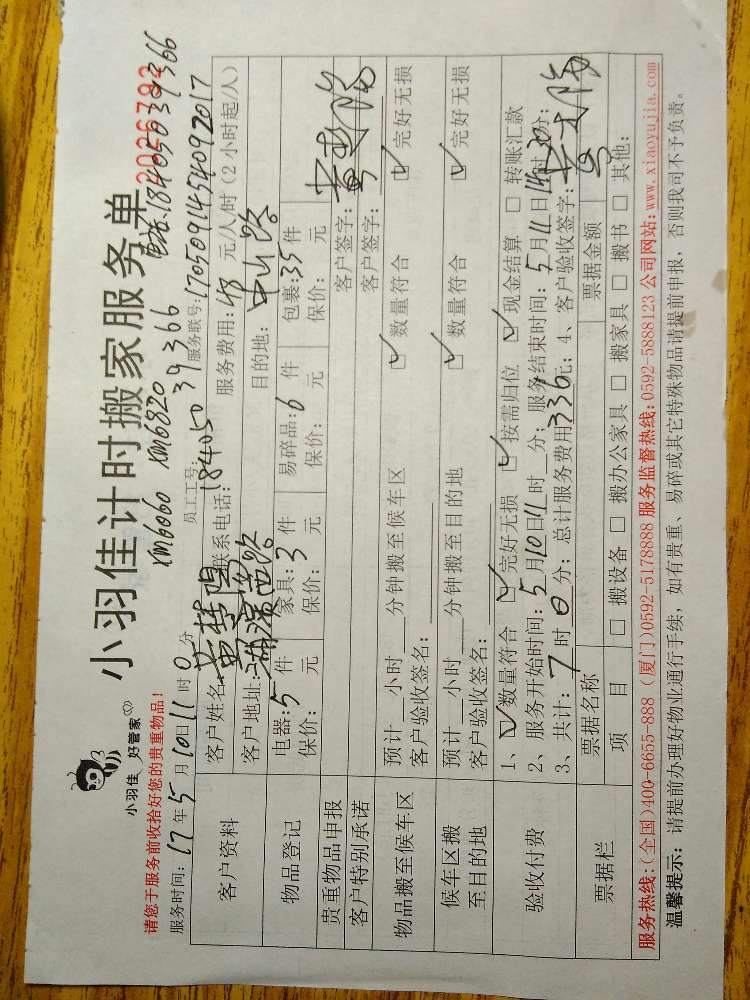 小羽佳 好管家
小羽佳计时搬家服务单
2026792
XM6060 XM6820 电话:18405039366
请您于服务前收拾好您的贵重物品!
服务时间: 17年5月10日11时0分 员工工号: 服务联号:1705091454092017
客户资料
客户姓名: 联系电话:18405039366 服务费用:48元/人/时(2小时起/人)
客户地址:湖滨西路 目的地:中山路
物品登记
电器:5件 家具:3件 易碎品:6件 包裹:35件
保价: 元 保价: 元 保价: 元 保价: 元
贵重物品申报 客户签字:
客户特别承诺 客户签字:
物品搬至候车区
预计__小时__分钟搬至候车区 ☑ 数量符合 ☑ 完好无损
客户验收签名:
候车区搬至目的地
预计__小时__分钟搬至目的地 ☑ 数量符合 ☑ 完好无损
客户验收签名:
验收付费
1、☑ 数量符合 ☑ 完好无损 ☑ 按需归位 ☑ 现金结算 □ 转账汇款
2、服务开始时间:5月10日11时__分; 服务结束时间:5月11日14时30分;
3、共计:7时0分; 总计服务费用336元; 4、客户验收签字:
票据栏
票据名称 票据金额
项 目 □ 搬设备 □ 搬办公家具 □ 搬家具 □ 搬书 □ 其他:
服务热线:(全国)400-6655-888 (厦门)0592-5178888 服务监督热线:0592-5888123 公司网站:www.xiaoyujia.com
温馨提示: 请提前办理好物业通行手续,如有贵重、易碎或其它特殊物品请提前申报,否则我司不予负责。